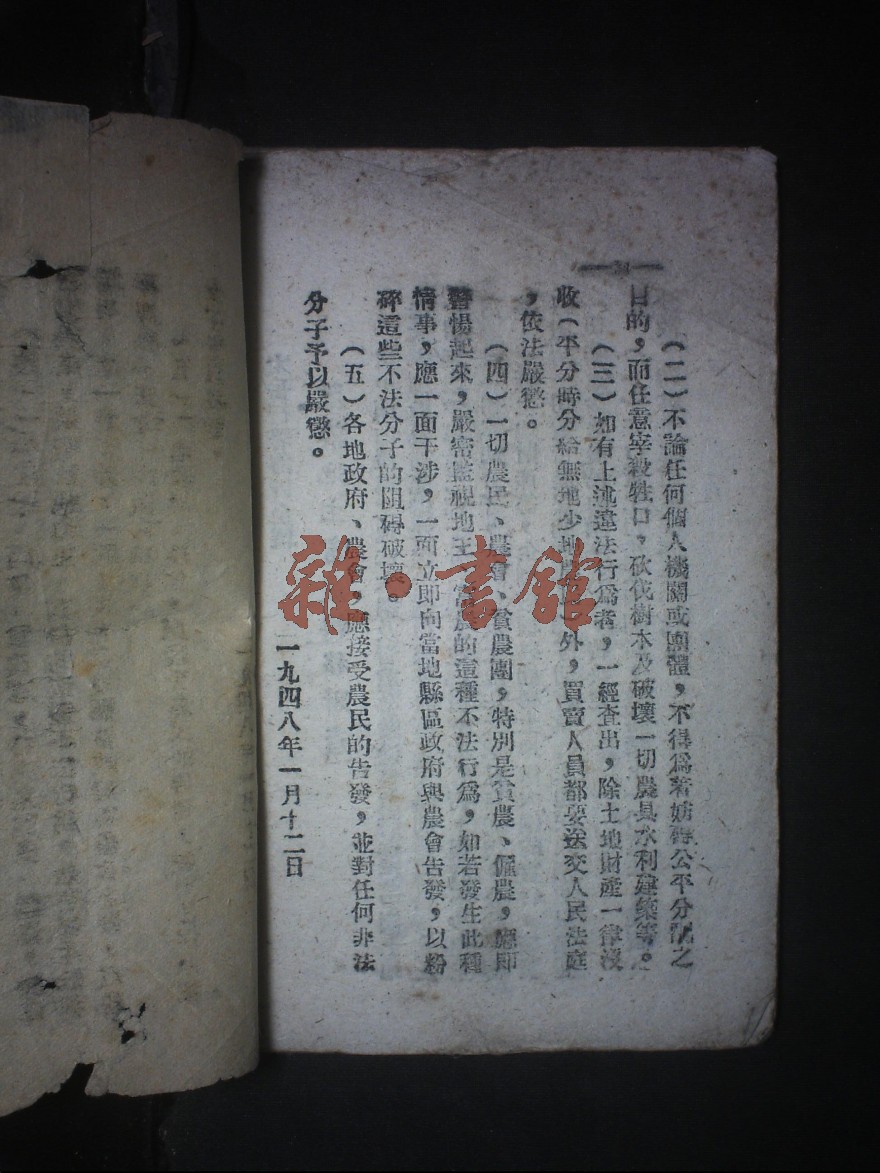 （二）不論任何個人機關或團體，不得爲着妨碍公平分配之
目的，而任意宰殺牲口，砍伐樹木及破壞一切農具水利建築等。
（三）如有上述違法行爲者，一經查出，除土地財產一律沒
收（平分時分給無地少地 外，買賣人員都要送交人民法庭
，依法嚴懲。
（四）一切農民、農會、貧農團，特別是貧農、僱農，應即
警惕起來，嚴密監視地主、富農的這種不法行爲，如若發生此種
情事，應一面干涉，一面立即向當地縣區政府與農會告發，以粉
碎這些不法分子的阻碍破壞。
（五）各地政府、農會，應接受農民的告發，並對任何非法
分子予以嚴懲。
一九四八年一月十二日
雜·書館